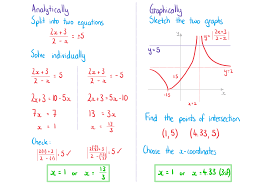 Analytically
Split into two equations
2x+3 / 2-x = ±5
Solve individually
2x+3 / 2-x = 5
2x+3 = 10-5x
7x = 7
x = 1
2x+3 / 2-x = -5
2x+3 = 5x-10
13 = 3x
x = 13/3
Check:
x = 1 or x = 13/3
Graphically
Sketch the two graphs
y=5
x=2
Find the points of intersection
(1,5) (4.33,5)
Choose the x-coordinates
x = 1 or x = 4.33 (3sf)